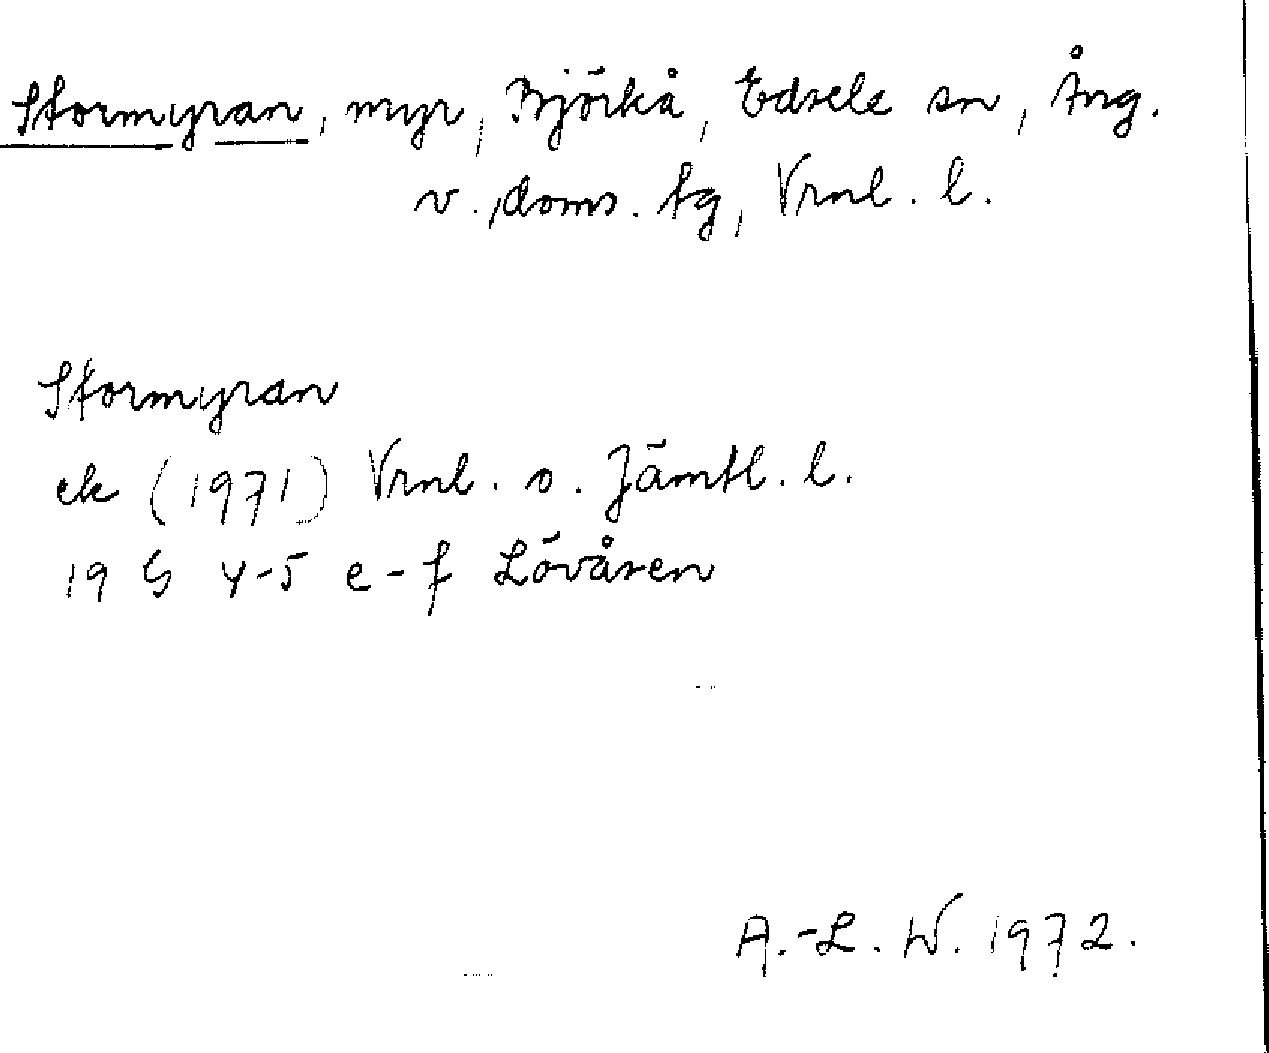 Stormyran, myr, Björkå, Edsele sn, Ång.
v. doms. tg, Vrnl. l.
Stormyran
ek (1971) Vrnl. o. Jämtl. l.
19 G 4-5 e-f Lövåsen
A.-L. W. 1972.